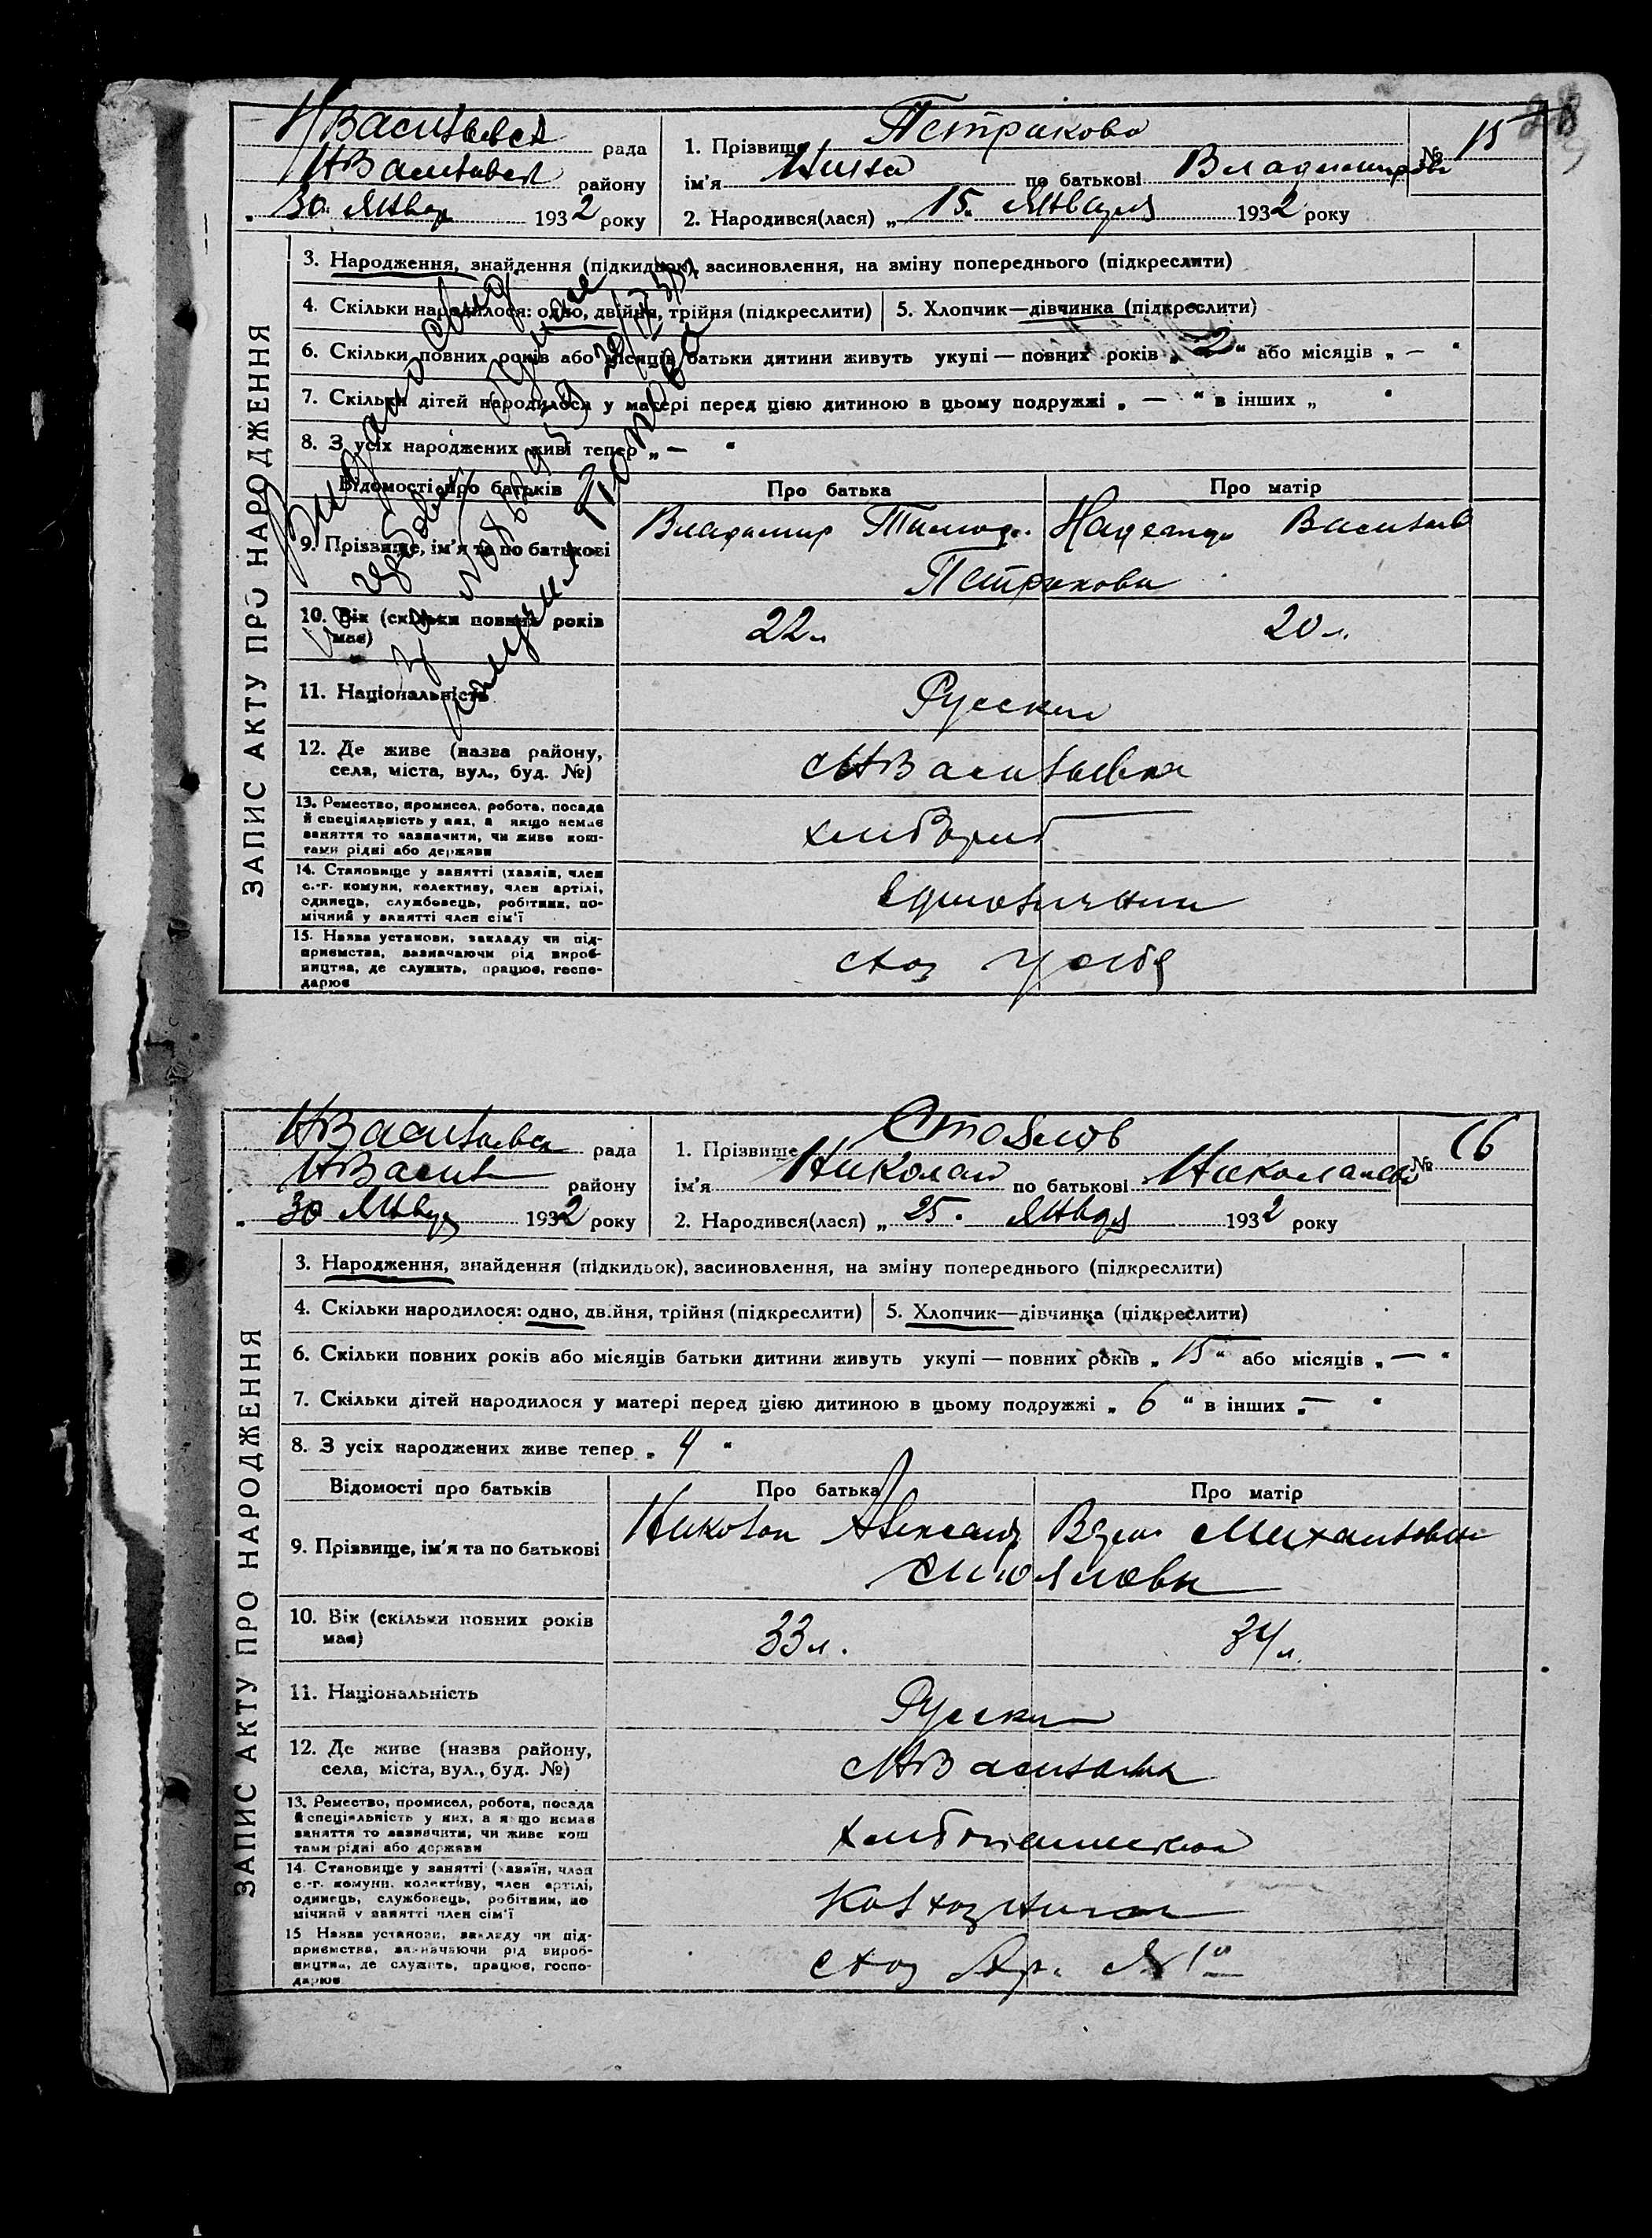 28
НВасильевск рада
НВасильевск району
„ 30 Январ 1932 року
1. Прізвище Петракова
№ 15
ім'я Нина по батькові Владимиров
2. Народився(лася) „ 15 „ Января 1932 року
ЗАПИС АКТУ ПРО НАРОДЖЕННЯ
3. Народження, знайдення (підкидьок), засиновлення, на зміну попереднього (підкреслити)
4. Скільки народилося: одно, двійня, трійня (підкреслити)
5. Хлопчик—дівчинка (підкреслити)
6. Скільки повних років або місяців батьки дитини живуть укупі — повних років „ 2 “ або місяців „ — “
7. Скільки дітей народилося у матері перед цією дитиною в цьому подружжі „ — “ в інших „ “
8. З усіх народжених живі тепер „ — “
Відомості про батьків
Про батька
Про матір
9. Прізвище, ім'я та по батькові
Владимир Тимоф.
Надежда Васильев
Петраковы
10. Вік (скільки повних років має)
22 л.
20 л.
11. Національність
Русские
12. Де живе (назва району, села, міста, вул., буд. №)
НВасильевка
13. Ремество, промисел, робота, посада
й спеціяльність у них, а якщо немає
заняття то зазначити, чи живе кош-
тами рідні або держави
хлебороб
14. Становище у занятті (хазяїн, член
с.-г. комуни, колективу, член артілі,
одинець, службовець, робітник, по-
мічний у занятті член сім'ї
Единоличник
15. Назва установи, закладу чи під-
приємства, зазначаючи рід вироб-
ництва, де служить, працює, госпо-
дарює
НВасильевск рада
НВасил району
„ 30 Январ 1932 року
1. Прізвище Стоялов
№ 16
ім'я Николай по батькові Николаев
2. Народився(лася) „ 25 „ Января 1932 року
ЗАПИС АКТУ ПРО НАРОДЖЕННЯ
3. Народження, знайдення (підкидьок), засиновлення, на зміну попереднього (підкреслити)
4. Скільки народилося: одно, двійня, трійня (підкреслити)
5. Хлопчик—дівчинка (підкреслити)
6. Скільки повних років або місяців батьки дитини живуть укупі — повних років „ 15 “ або місяців „ — “
7. Скільки дітей народилося у матері перед цією дитиною в цьому подружжі „ 6 “ в інших „ — “
8. З усіх народжених живе тепер „ 4 “
Відомості про батьків
Про батька
Про матір
9. Прізвище, ім'я та по батькові
Николай Александ
Михайловна
Стояловы
10. Вік (скільки повних років має)
33 л.
34 л.
11. Національність
Русские
12. Де живе (назва району, села, міста, вул., буд. №)
НВасильевка
13. Ремество, промисел, робота, посада
й спеціяльність у них, а якщо немає
заняття то зазначити, чи живе кош
тами рідні або держави
хлебопашество
14. Становище у занятті (хазяїн, член
с.-г. комуни, колективу, член артілі,
одинець, службовець, робітник, по
мічний у занятті член сім'ї
Колхозники
15 Назва установи, закладу чи під-
приємства, зазначаючи рід вироб-
ництва, де служить, працює, госпо-
дарює